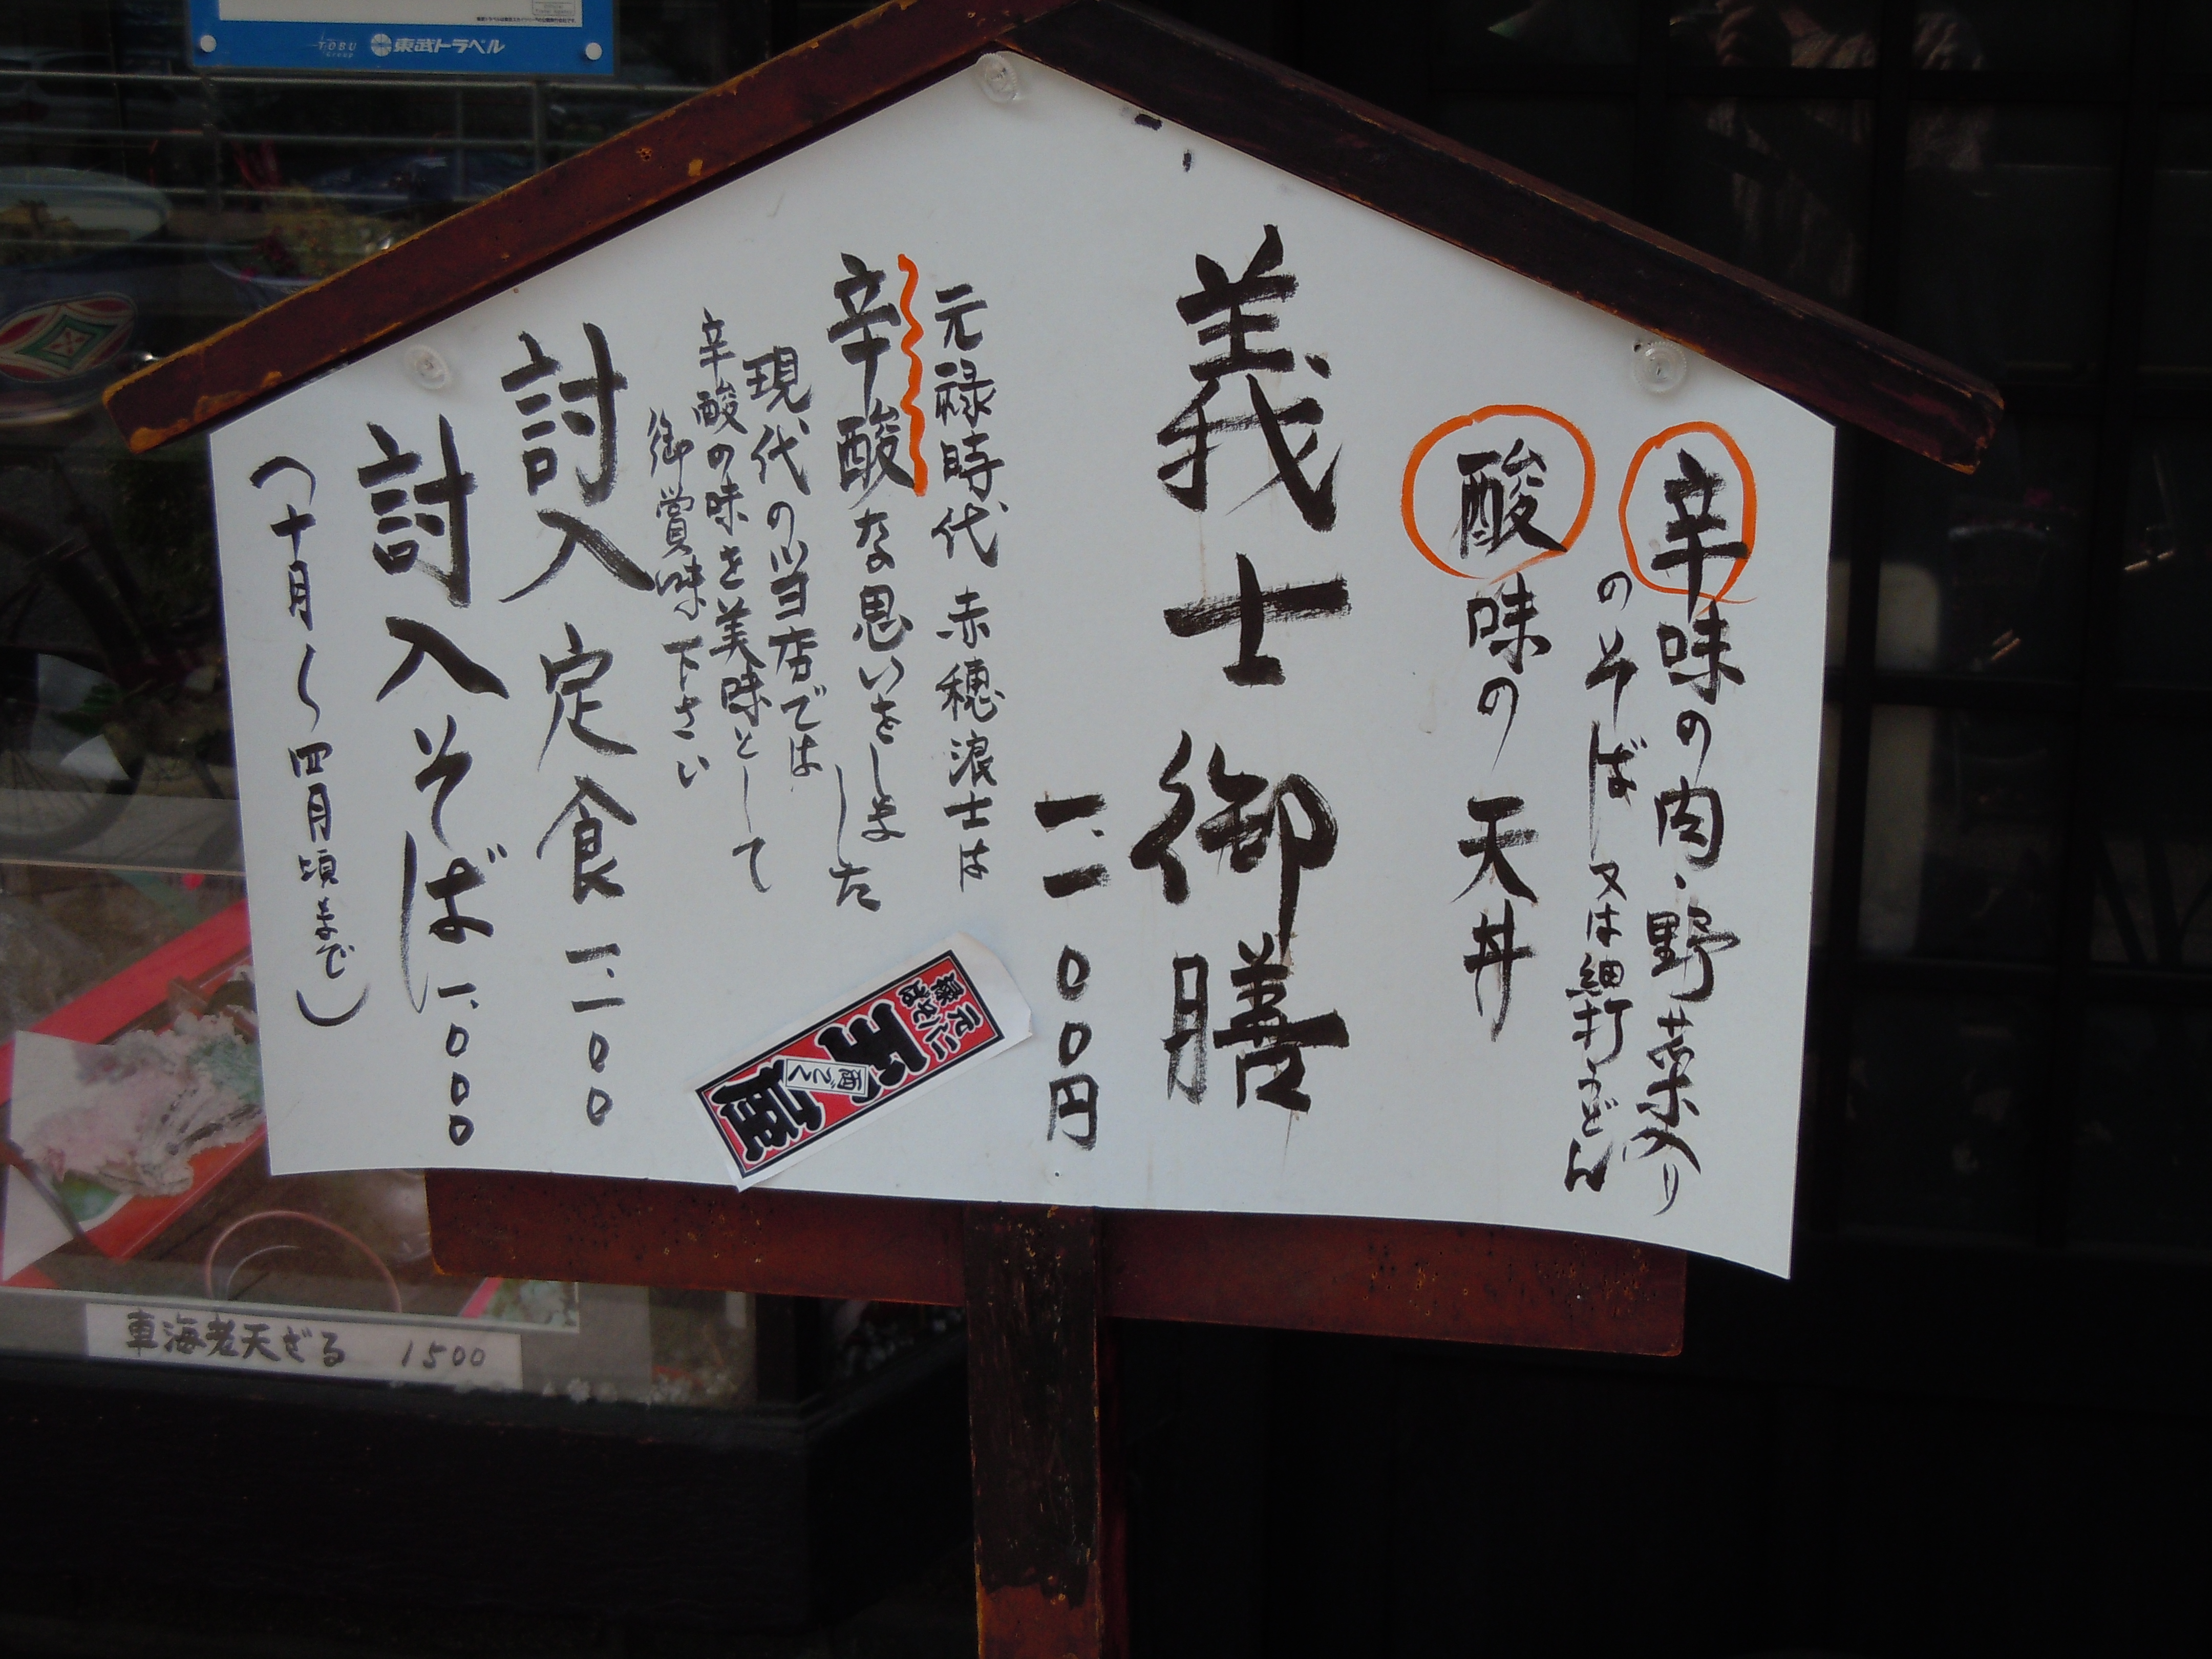 TOBU
Group
東武トラベル
辛味の肉・野菜入り
のそば又は細打うどん
酸味の天丼
義士御膳
一、二〇〇円
元禄時代赤穂浪士は
辛酸な思いをしました
現代の当店では
辛酸の味を美味として
御賞味下さい
討入定食一、二〇〇
討入そば一、〇〇〇
(十月〜四月頃まで)
元に
禄そば
屋
車海老天ざる 1500